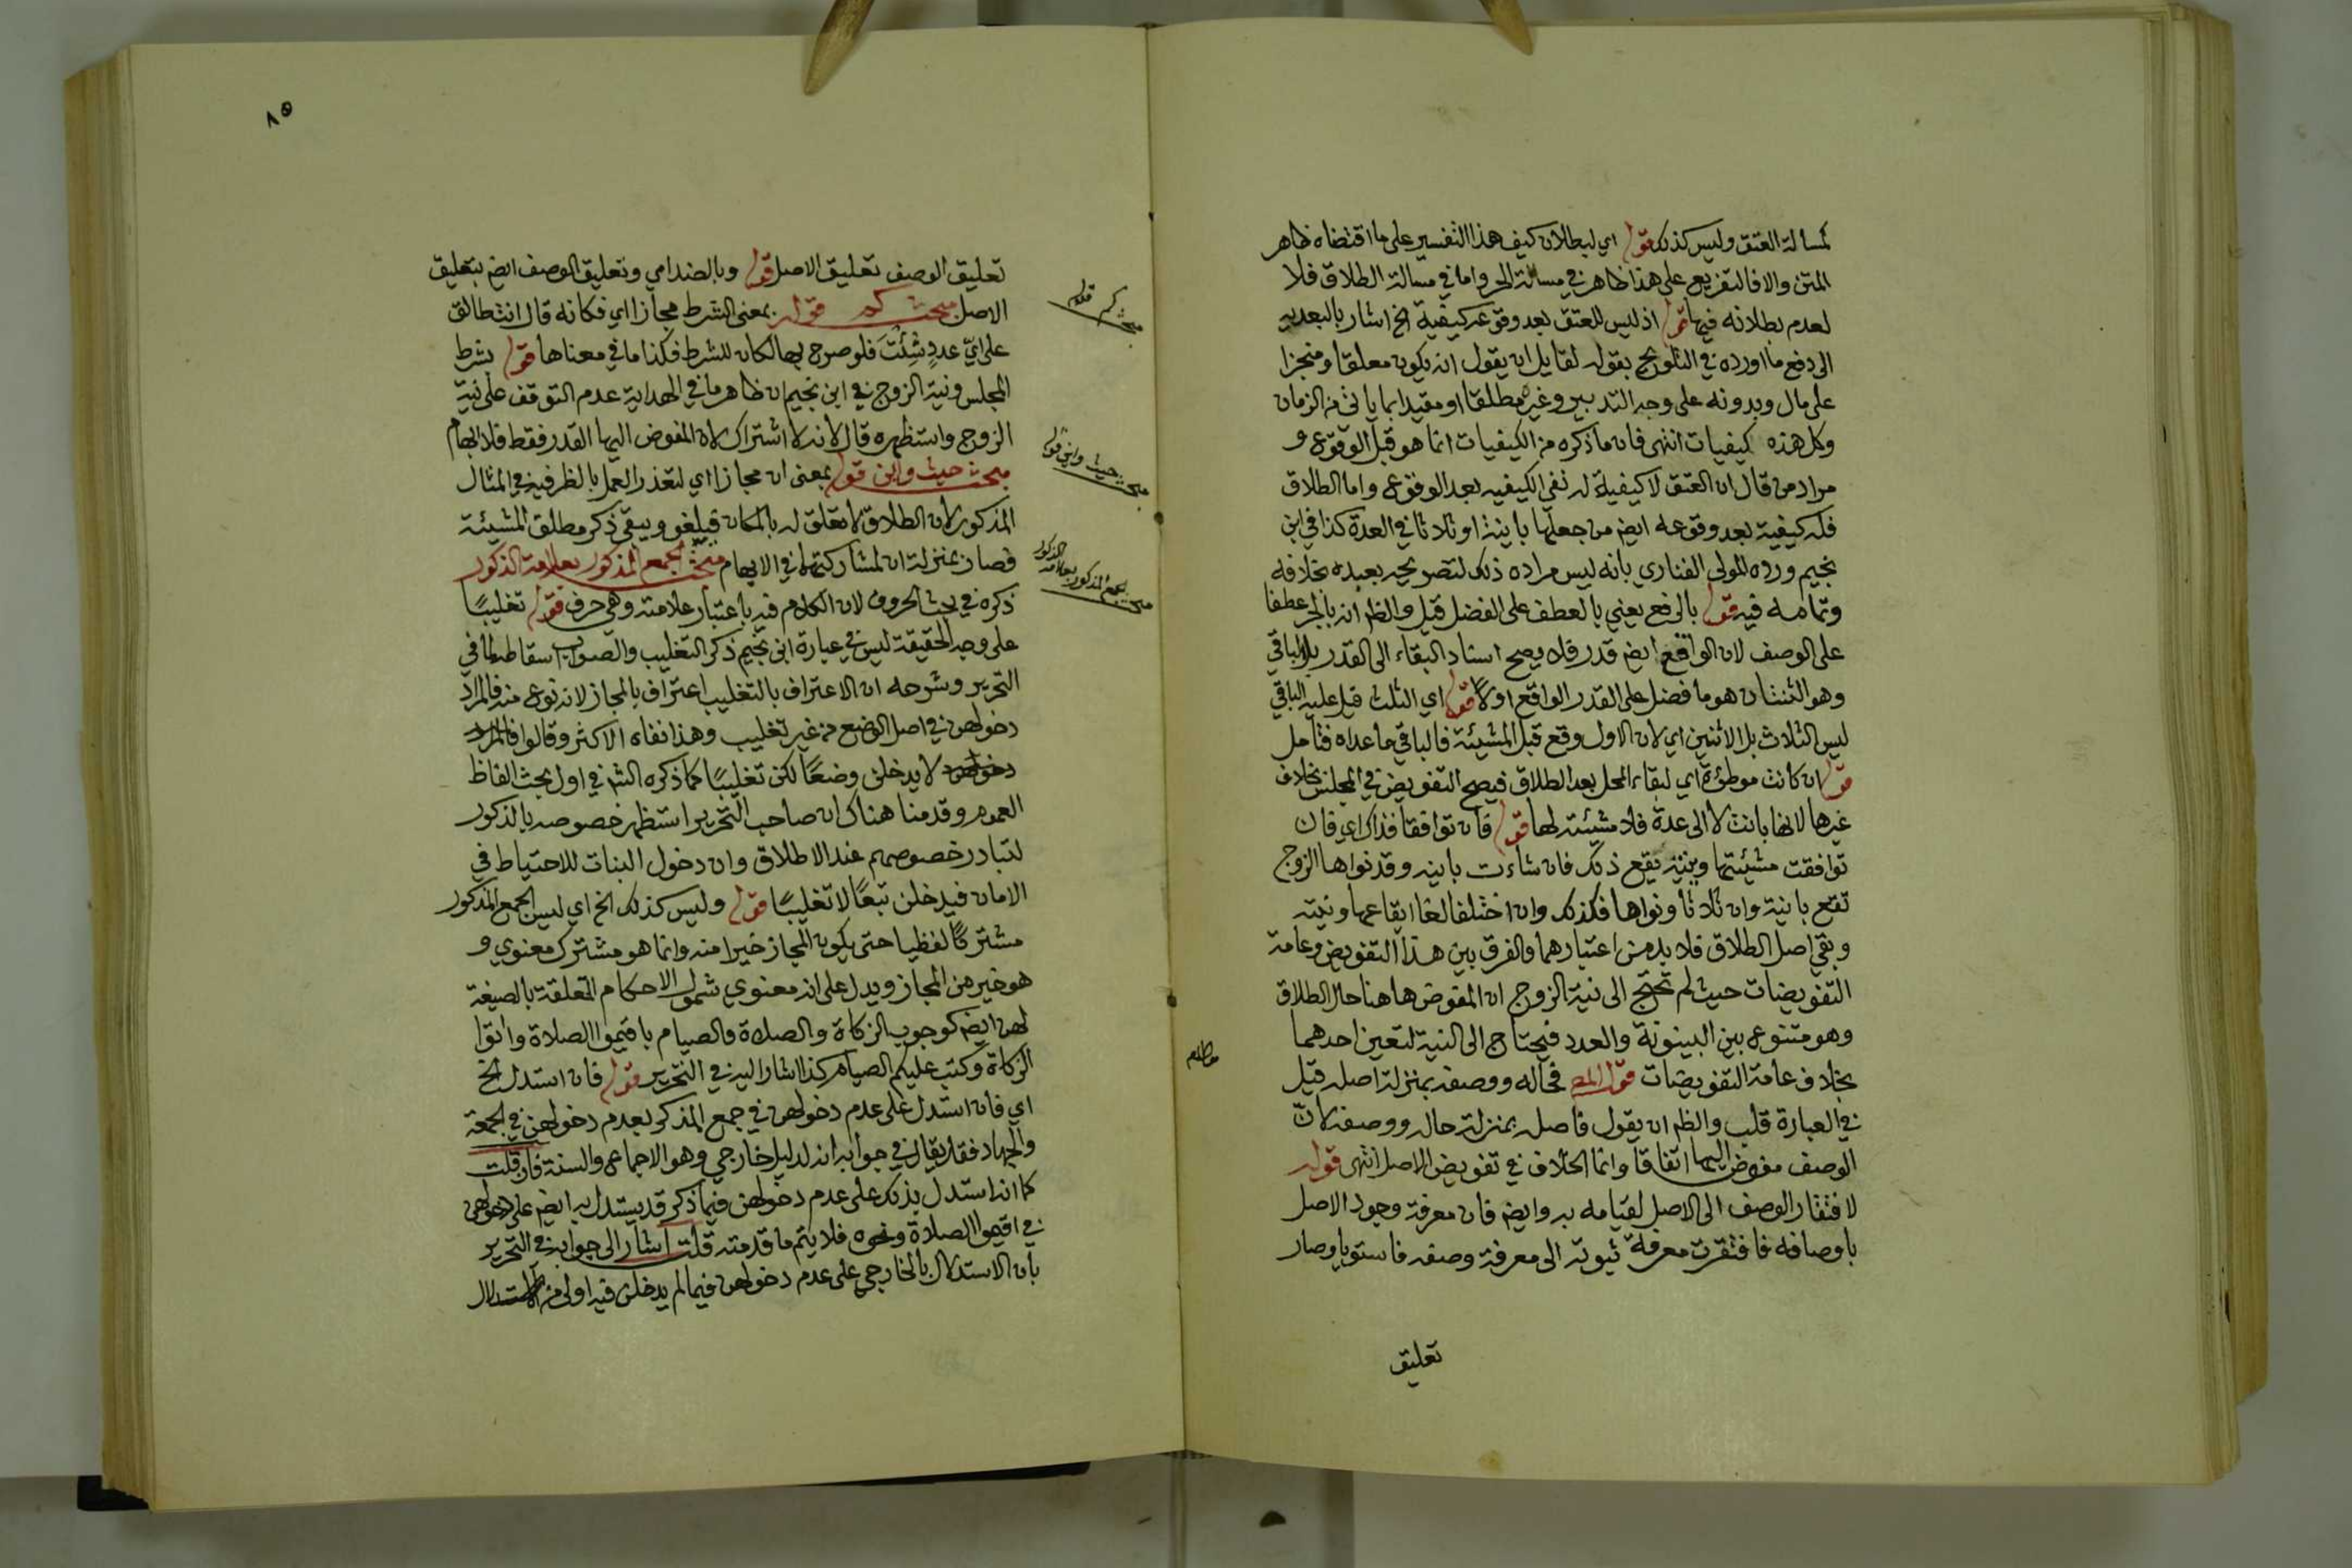 لمسالة العتق وليس كذلك قوله اي ليطالان كيف هذا التفسير على ما اقتضاه ظاهر
المتن والا فالتفريع على هذا ظاهر في مسالة الحر واما في مسالة الطلاق فلا
لعدم بطلانه فيها قوله اذ ليس للعتق بعد وقوعه كيفية الخ اشار بالبعدية
الى دفع ما اورده في التلويح بقوله لقايل ان يقول انه يكون معلقا ومنجزا
على مال وبدونه على وجه التدبير وغيره مطلقا او مقيدا بما ياتي من الزمان
وكل هذه كيفيات انتهى فان ما ذكره من الكيفيات انما هو قبل الوقوع و
مراد من قال ان العتق لا كيفية له نفي الكيفيه بعد الوقوع واما الطلاق
فله كيفية بعد وقوعه ايض من جعلها باينة او ثلاثا في العدة كذا في ابن
نجيم ورده المولى الفناري بانه ليس مراده ذلك لتصريحه بعيده بخلافه
وتمامه فيه قوله بالرفع يعني بالعطف على الفضل قيل والظم انه بالجر عطفا
على الوصف لان الواقع ايض قدر فلا يصح اسناد البقاء الى القدر بل الباقي
وهو الثنتان هو ما فضل على القدر الواقع اولا قوله اي الثلث قيل عليه الباقي
ليس الثلاث بل الاثنين اي لان الاول وقع قبل المشيئة فالباقي ما عداه فتامل
قوله ان كانت موطوءة اي لبقاء المحل بعد الطلاق فيصح التفويض في المجلس بخلاف
غيرها لانها بانت لا الى عدة فلا مشيئة لها قوله فان توافقا فذاك اي فان
توافقت مشيئتها ونيته يقع ذلك فان شاءت باينه وقد نواها الزوج
تقع باينة وان ثلاثا ونواها فكذلك وان اختلفا لغا ايقاعها ونيته
وبقي اصل الطلاق فلا بد من اعتبارهما والفرق بين هذا التفويض وعامة
التفويضات حيث لم تحتج الى نية الزوج ان المفوض ها هنا حال الطلاق
وهو متنوع بين البينونة والعدد فيحتاج الى النية لتعين احدهما
بخلاف عامة التفويضات قول المص فحاله ووصفه بمنزلة اصله قيل
في العبارة قلب والظم ان يقول فاصله بمنزلة حاله ووصفه لان
الوصف مفوض اليها اتفاقا وانما الخلاف في تفويض الاصل انتهى قوله
لافتقار الوصف الى الاصل لقيامه به وايض فان معرفة وجود الاصل
باوصافه فافتقرت معرفة ثبوته الى معرفة وصفه فاستويا وصار
تعليق
مطلب
٨٥
تعليق الوصف تعليق الاصل قوله وبالضد امي وتعليق الوصف ايض بتعليق
الاصل مبحث كم قوله بمعنى الشرط مجازا اي فكانه قال انت طالق
على اي عدد شئت فلو صرح بها لكان للشرط فكذا ما في معناها قوله بشرط
المجلس ونية الزوج في ابن نجيم ان ظاهر ما في الهداية عدم التوقف على نية
الزوج واستظهره قال لانه لا اشتراك لان المفوض اليها القدر فقط فلا ابهام
مبحث حيث واين قوله بمعنى ان مجازا اي لتعذر العمل بالظرفية في المثال
المذكور لان الطلاق لا تعلق له بالمكان فيلغو ويبقى ذكر مطلق المشيئة
فصار بمنزلة ان لمشاركتهما في الابهام مبحث الجمع المذكور بعلامة الذكور
ذكره في بحث الحروف لان الكلام فيه باعتبار علامته وهي حرف قوله تغليبا
على وجه الحقيقة ليس في عبارة ابن نجيم ذكر التغليب والصواب اسقاطه لما في
التحرير وشرحه ان الاعتراف بالتغليب اعتراف بالمجاز لانه نوع منه فالمراد
دخولهن في اصل الوضع من غير تغليب وهذا نفاه الاكثر وقالوا فالمراد
دخولهن لا يدخلن وضعا لكن تغليبا كما ذكره الش في اول بحث الفاظ
العموم وقدمنا هناك ان صاحب التحرير استظهر خصوصه بالذكور
لتبادر خصوصهم عند الاطلاق وان دخول البنات للاحتياط في
الامان فيدخلن تبعا لا تغليبا قوله وليس كذلك الخ اي ليس الجمع المذكور
مشتركا لفظيا حتى يكون المجاز خيرا منه وانما هو مشترك معنوي و
هو خير من المجاز ويدل على انه معنوي شمول الاحكام المتعلقة بالصيغة
لهن ايض كوجوب الزكاة والصلاة والصيام باقيموا الصلاة واتوا
الزكاة وكتب عليكم الصيام كذا اشار اليه في التحرير قوله فان استدل الخ
اي فان استدل على عدم دخولهن في جمع المذكر بعدم دخولهن في الجمعة
والجهاد فقد يقال في جوابه انه لدليل خارجي وهو الاجماع والسنة فان قلت
كما انه استدل بذلك على عدم دخولهن فيما ذكر قد يستدل به ايض على دخولهن
في اقيموا الصلاة ونحوه فلا يتم ما قدمته قلت اشار الى جوابه في التحرير
بان الاستدلال بالخارجي على عدم دخولهن فيما لم يدخلن فيه اولى من الاستدلال
مبحث كم
مبحث حيث واين
مبحث الجمع المذكور بعلامة الذكور